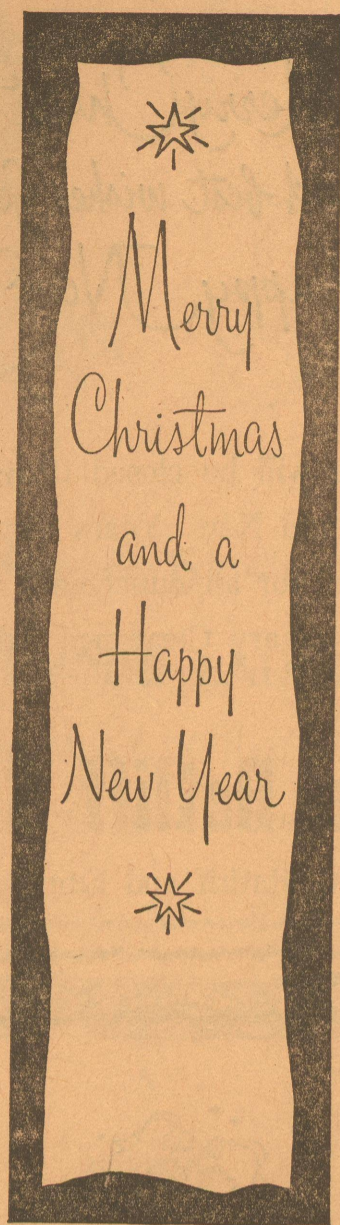 Merry
Christmas
and a
Happy
New Year